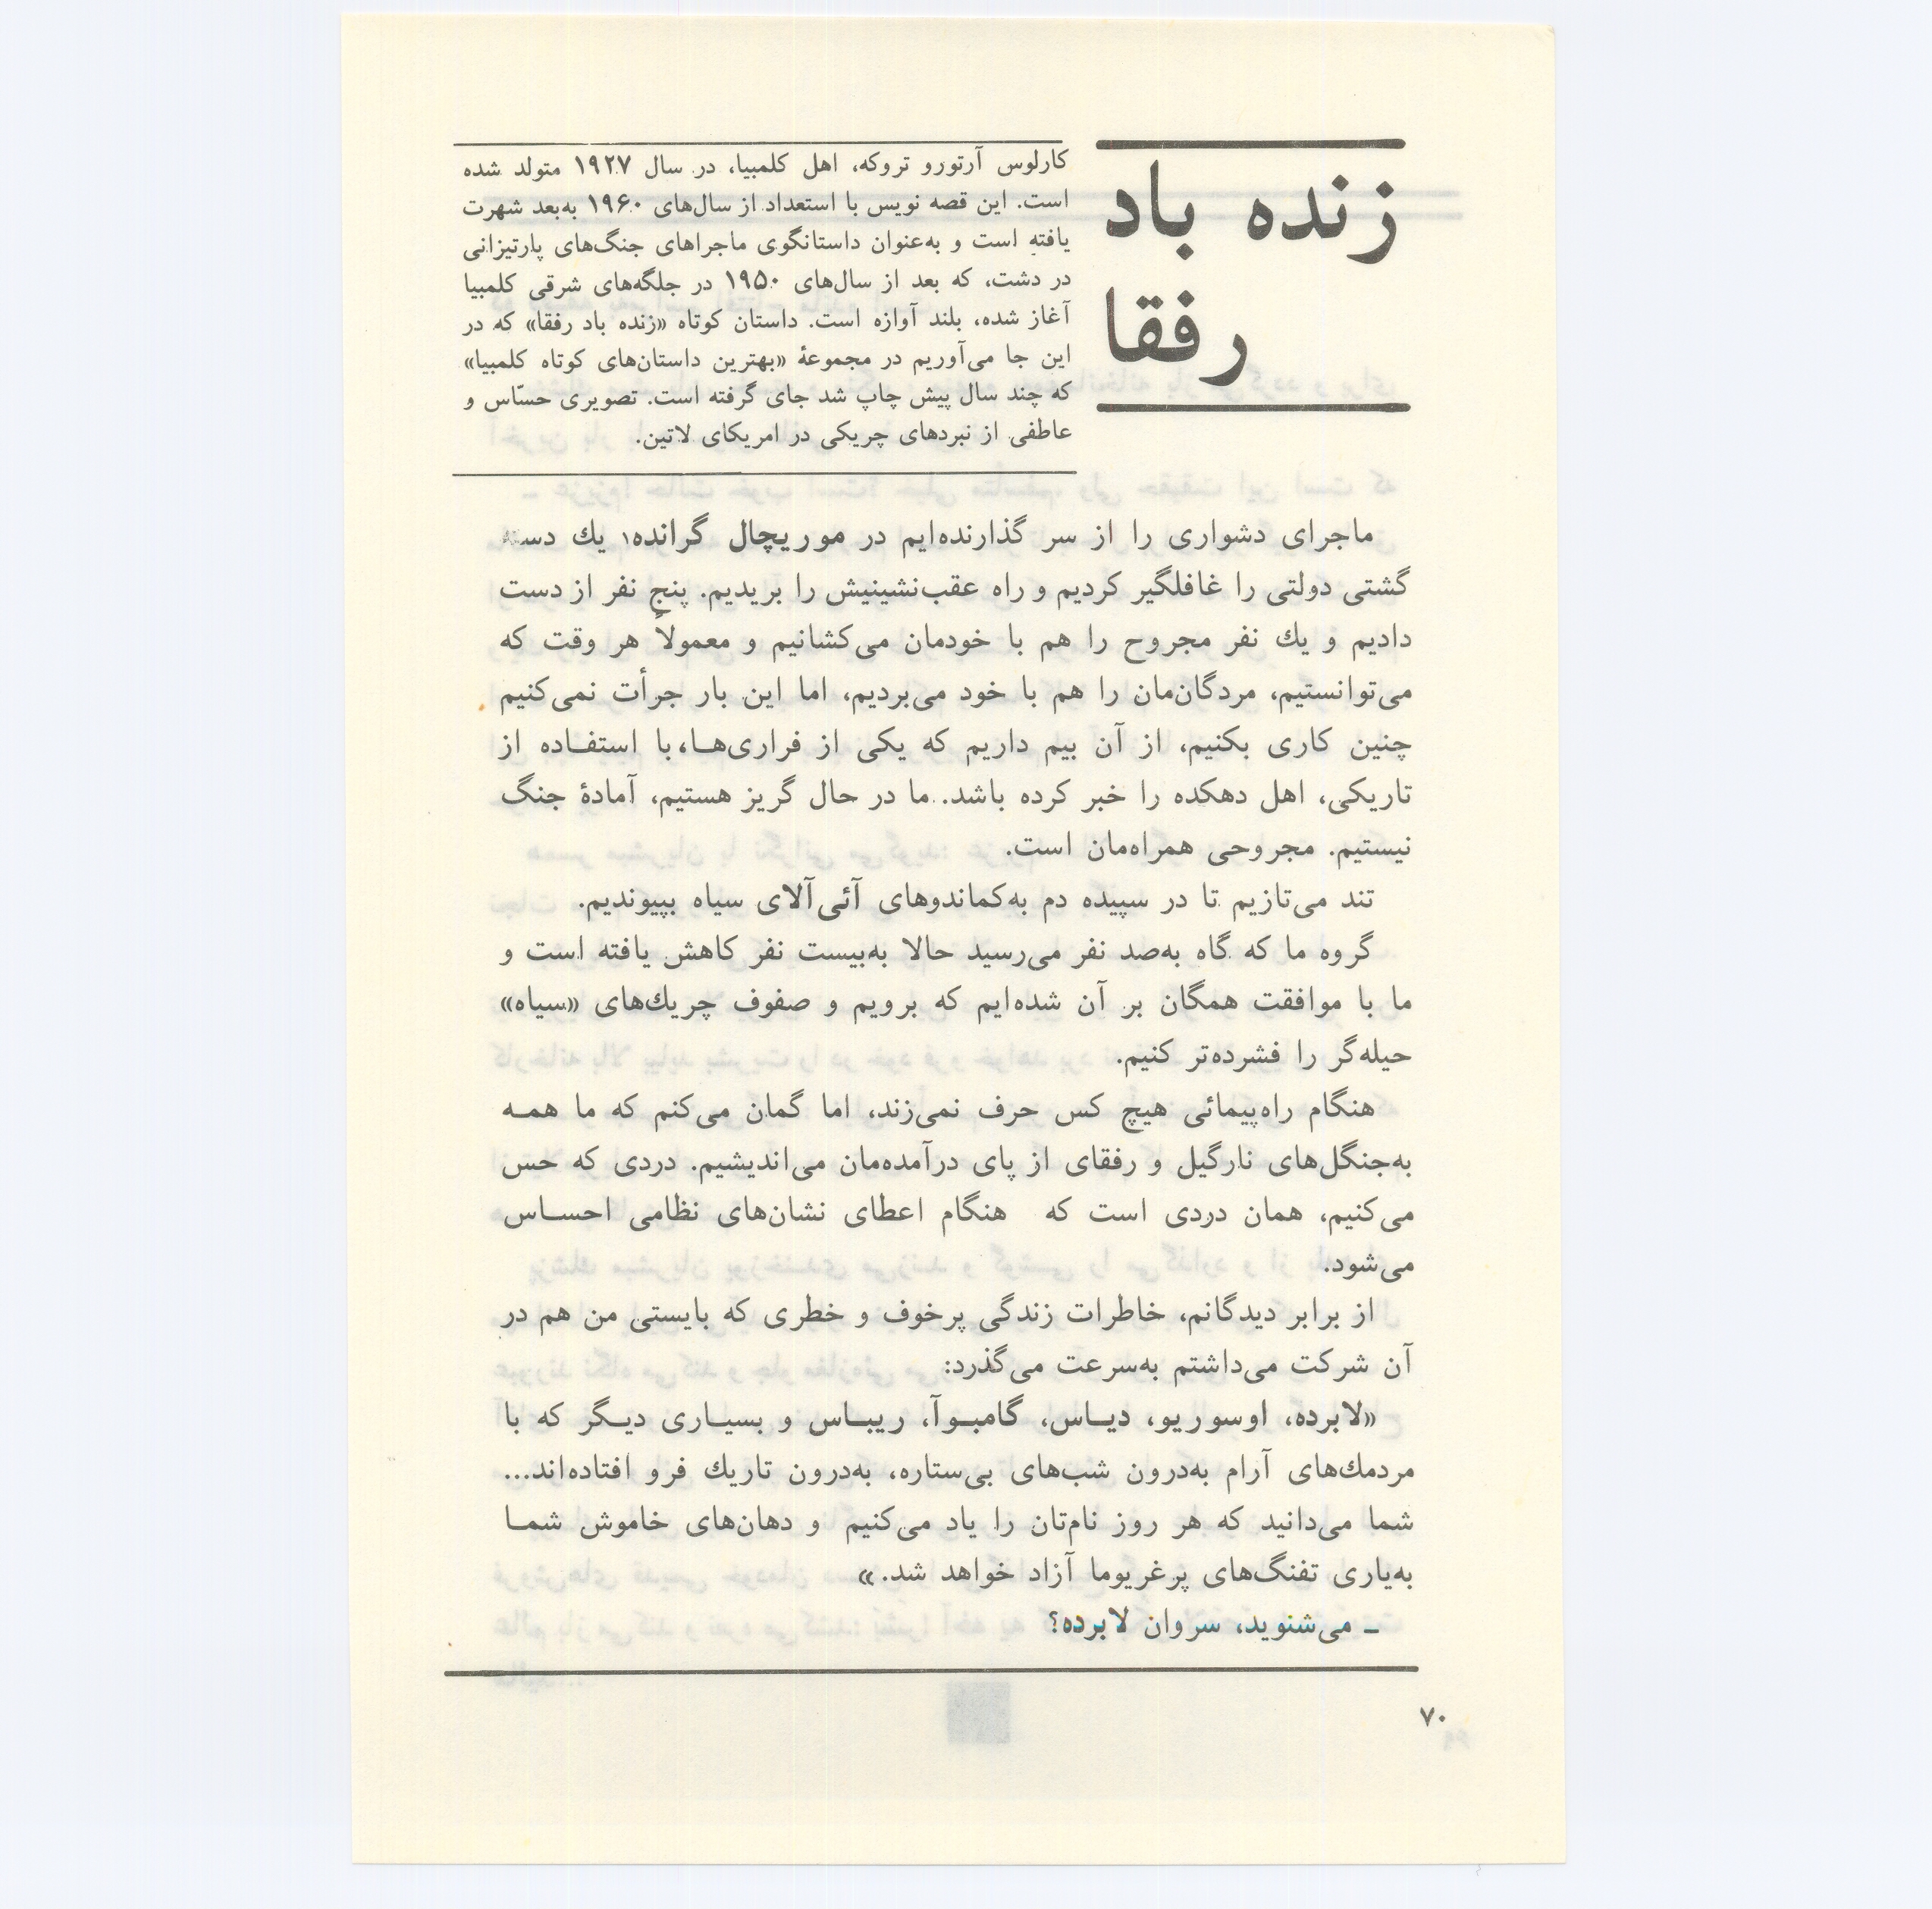 زنده باد
رفقا
کارلوس آرتورو تروکه، اهل کلمبیا، در سال ۱۹۲۷ متولد شده
است. این قصه نویس با استعداد از سال‌های ۱۹۶۰ به‌بعد شهرت
یافته است و به‌عنوان داستانگوی ماجراهای جنگ‌های پارتیزانی
در دشت، که بعد از سال‌های ۱۹۵۰ در جلگه‌های شرقی کلمبیا
آغاز شده، بلند آوازه است. داستان کوتاه «زنده باد رفقا» که در
این جا می‌آوریم در مجموعهٔ «بهترین داستان‌های کوتاه کلمبیا»
که چند سال پیش چاپ شد جای گرفته است. تصویری حسّاس و
عاطفی از نبردهای چریکی در امریکای لاتین.
ماجرای دشواری را از سر گذارنده‌ایم در موریچال گرانده۱ یك دسته
گشتی دولتی را غافلگیر کردیم و راه عقب‌نشینیش را بریدیم. پنج نفر از دست
دادیم و یك نفر مجروح را هم با خودمان می‌کشانیم و معمولاً هر وقت که
می‌توانستیم، مردگان‌مان را هم با خود می‌بردیم، اما این بار جرأت نمی‌کنیم
چنین کاری بکنیم، از آن بیم داریم که یکی از فراری‌هـا،با استفـاده از
تاریکی، اهل دهکده را خبر کرده باشد. ما در حال گریز هستیم، آمادهٔ جنگ
نیستیم. مجروحی همراه‌مان است.
تند می‌تازیم تا در سپیده دم به‌کماندوهای آئی‌آلای سیاه بپیوندیم.
گروه ما که گاه به‌صد نفر می‌رسید حالا به‌بیست نفر کاهش یافته است و
ما با موافقت همگان بر آن شده‌ایم که برویم و صفوف چریك‌های «سیاه»
حیله‌گر را فشرده‌تر کنیم.
هنگام راه‌پیمائی هیچ کس حرف نمی‌زند، اما گمان می‌کنم که ما همـه
به‌جنگل‌های نارگیل و رفقای از پای درآمده‌مان می‌اندیشیم. دردی که حس
می‌کنیم، همان دردی است که هنگام اعطای نشان‌های نظامی احسـاس
می‌شود.
از برابر دیدگانم، خاطرات زندگی پرخوف و خطری که بایستی من هم در
آن شرکت می‌داشتم به‌سرعت می‌گذرد:
«لابرده، اوسوریو، دیـاس، گامبـوآ، ریبـاس و بسیـاری دیـگر که با
مردمك‌های آرام به‌درون شب‌های بی‌ستاره، به‌درون تاریك فرو افتاده‌اند...
شما می‌دانید که هر روز نام‌تان را یاد می‌کنیم و دهان‌های خاموش شمـا
به‌یاری تفنگ‌های پرغریوما آزاد خواهد شد.»
ـ می‌شنوید، سروان لابرده؟
۷۰